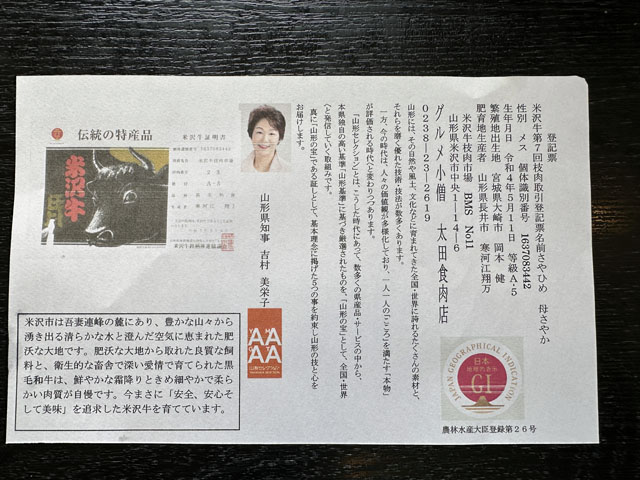 登記票
米沢牛第7回枝肉取引登記票名前さやひめ 母さやか
性別 メス 個体識別番号 1637083442
生年月日 令和4年5月11日 等級A-5
繁殖地出生地 宮城県大崎市 岡本 健
肥育地生産者 山形県長井市 寒河江翔万
米沢牛枝肉市場 BMS No11
山形県米沢市中央1-14-6
グルメ小僧 太田食肉店
0238-23-2619
山形には、その自然や風土、文化などに育まれてきた全国・世界に誇れるたくさんの素材と、
それらを磨く優れた技術・技法が数多くあります。
一方、今の時代は、人々の価値観が多様化しており、一人一人の「こころ」を満たす「本物」
が評価される時代へと変わりつつあります。
「山形セレクション」とは、こうした時代にあって、数多くの県産品・サービスの中から、
本県独自の高い基準「山形基準」に基づき厳選されたものを、「山形の宝」として、全国・世界
へと発信していく取組みです。
真に「山形の宝」である証しとして、基本理念に掲げた5つの事を約束し山形の技と心を
お届けします。
山形県知事 吉村 美栄子
伝統の特産品
米沢牛
米沢牛証明書
1637083442
山形セレクション
JAPAN GEOGRAPHICAL INDICATION
日本
地理的表示
GI
農林水産大臣登録第26号
米沢市は吾妻連峰の麓にあり、豊かな山々から
湧き出る清らかな水と澄んだ空気に恵まれた肥
沃な大地です。肥沃な大地から取れた良質な飼
料と、衛生的な畜舎で深い愛情で育てられた黒
毛和牛は、鮮やかな霜降りときめ細やかで柔ら
かい肉質が自慢です。今まさに「安全、安心そ
して美味」を追求した米沢牛を育てています。